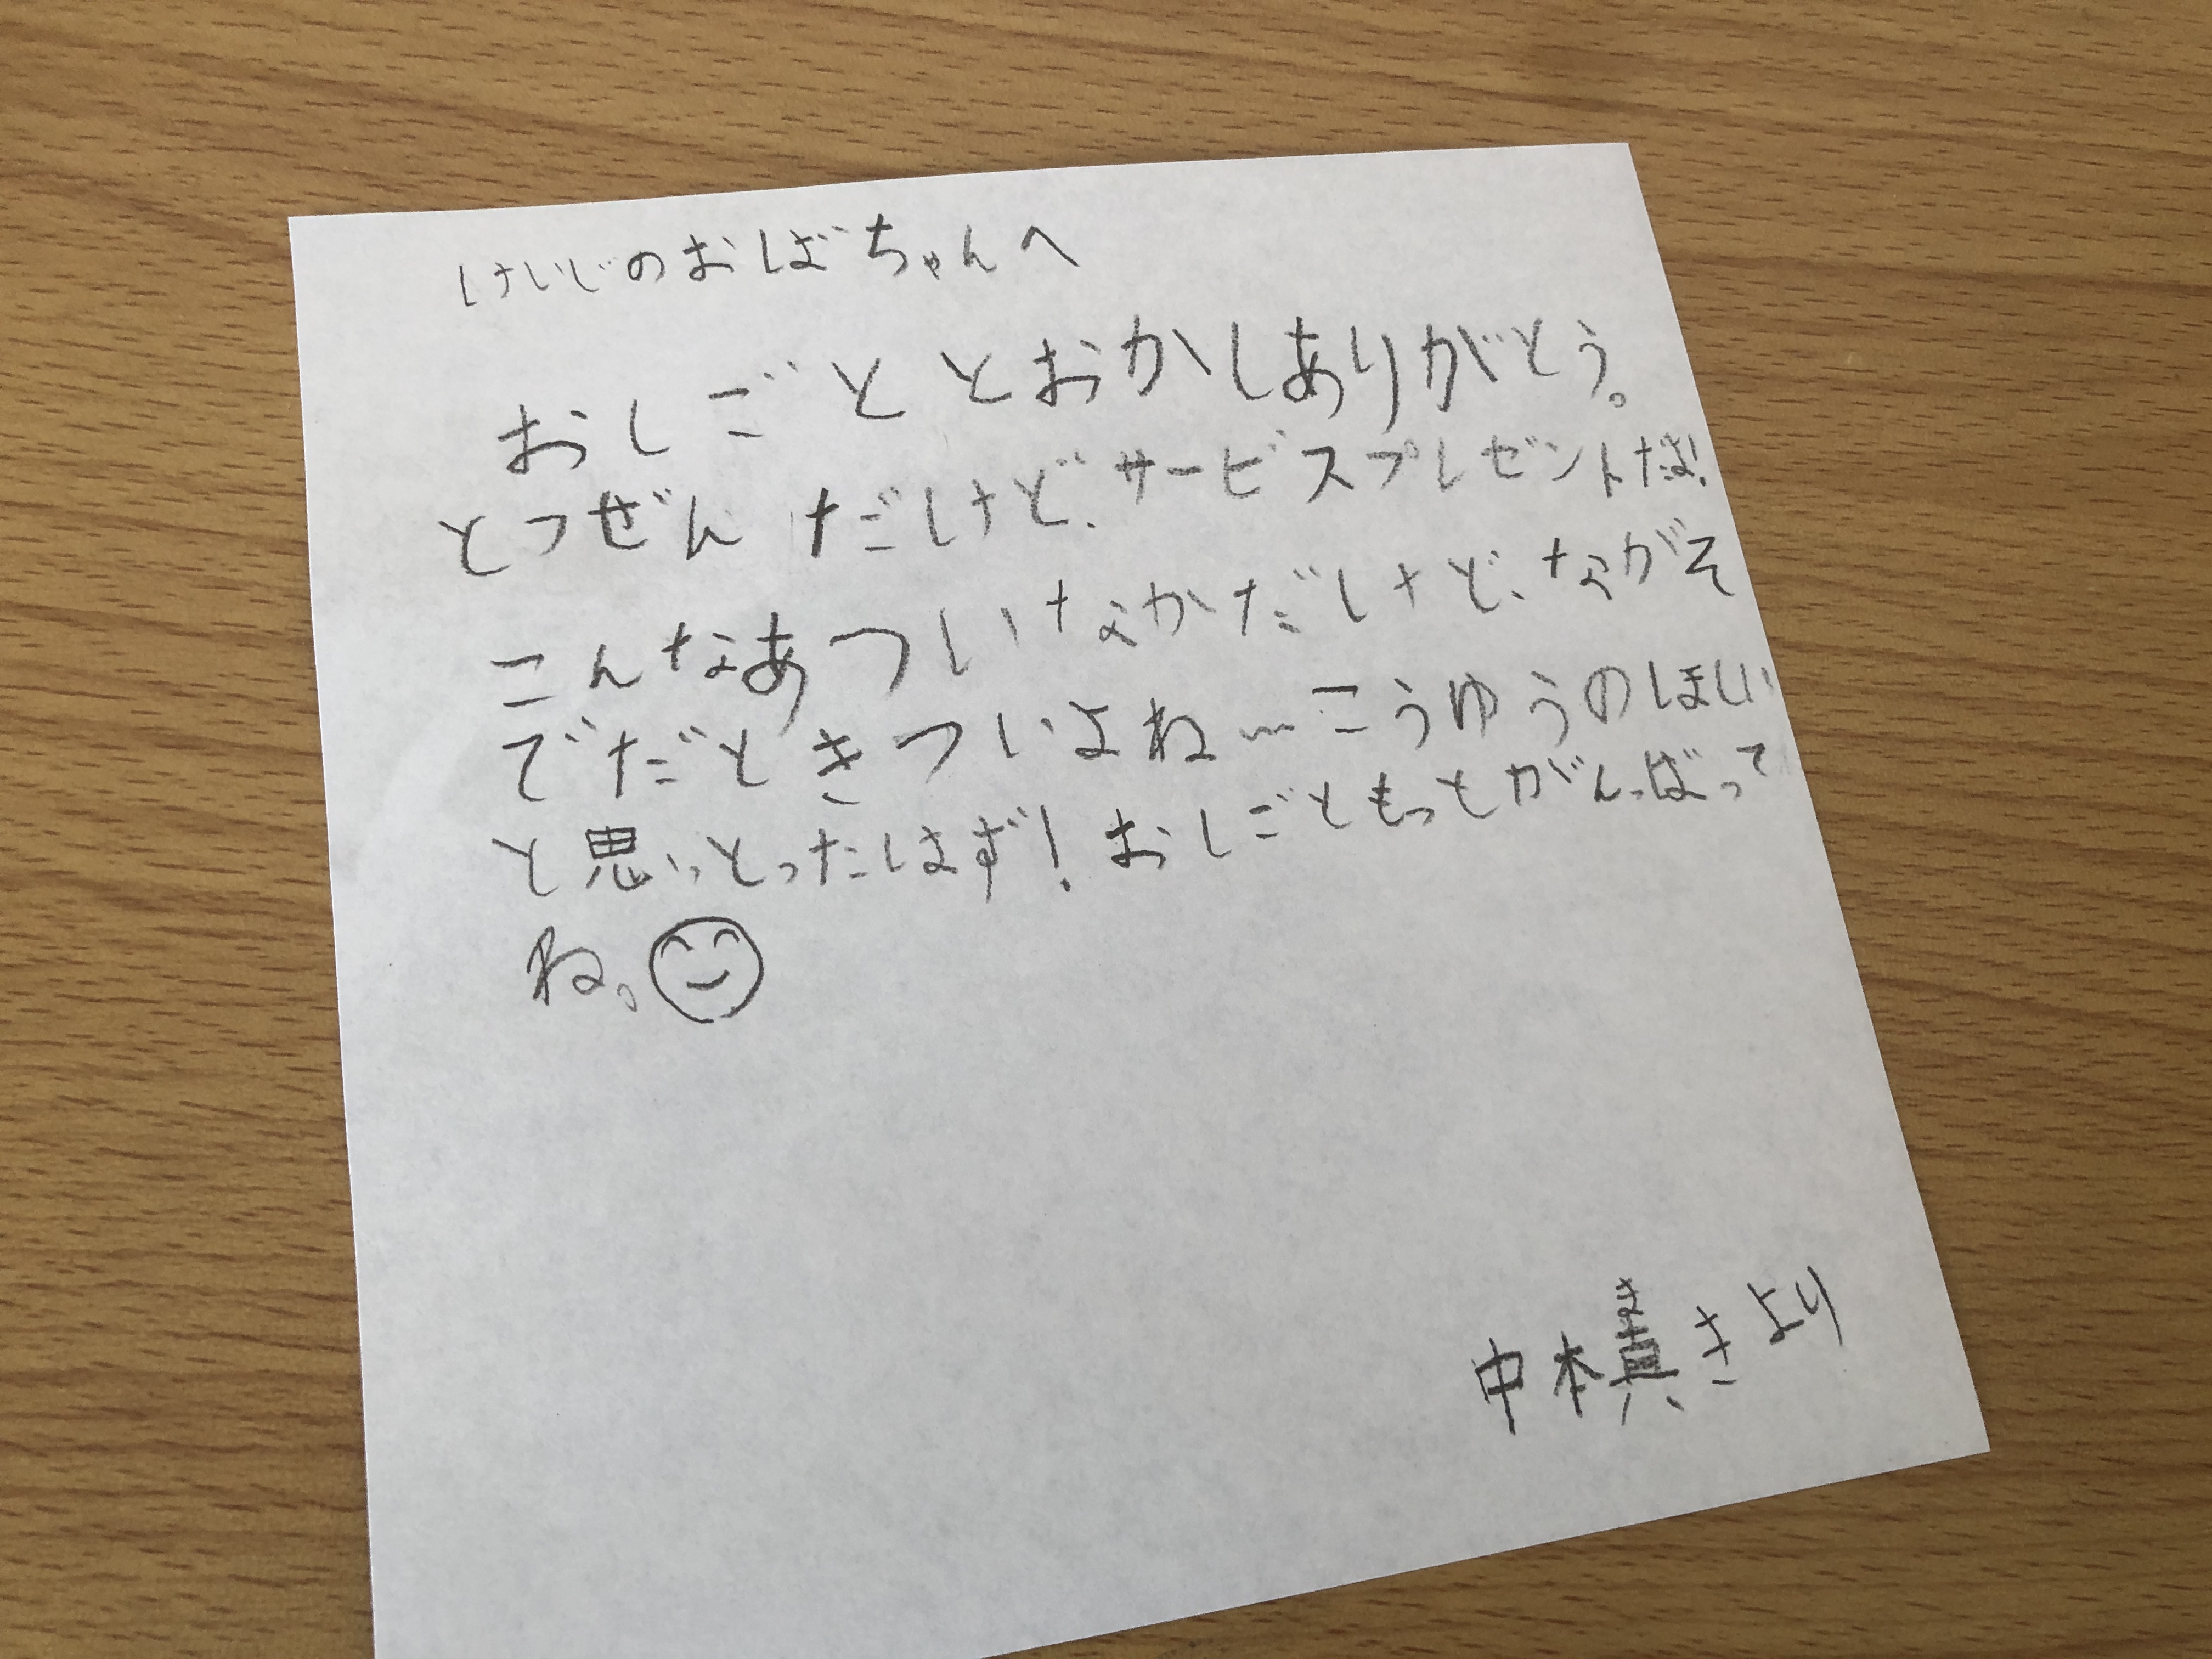 けいじのおばちゃんへ
おしごととおかしありがとう。
とつぜんだけど、サービスプレゼントだよ!
こんなあついなかだけど、ながそ
でだときついよね〜こうゆうのほしい
と思いとったはず!おしごともっとがんばって
ね。
ま
中本真きより